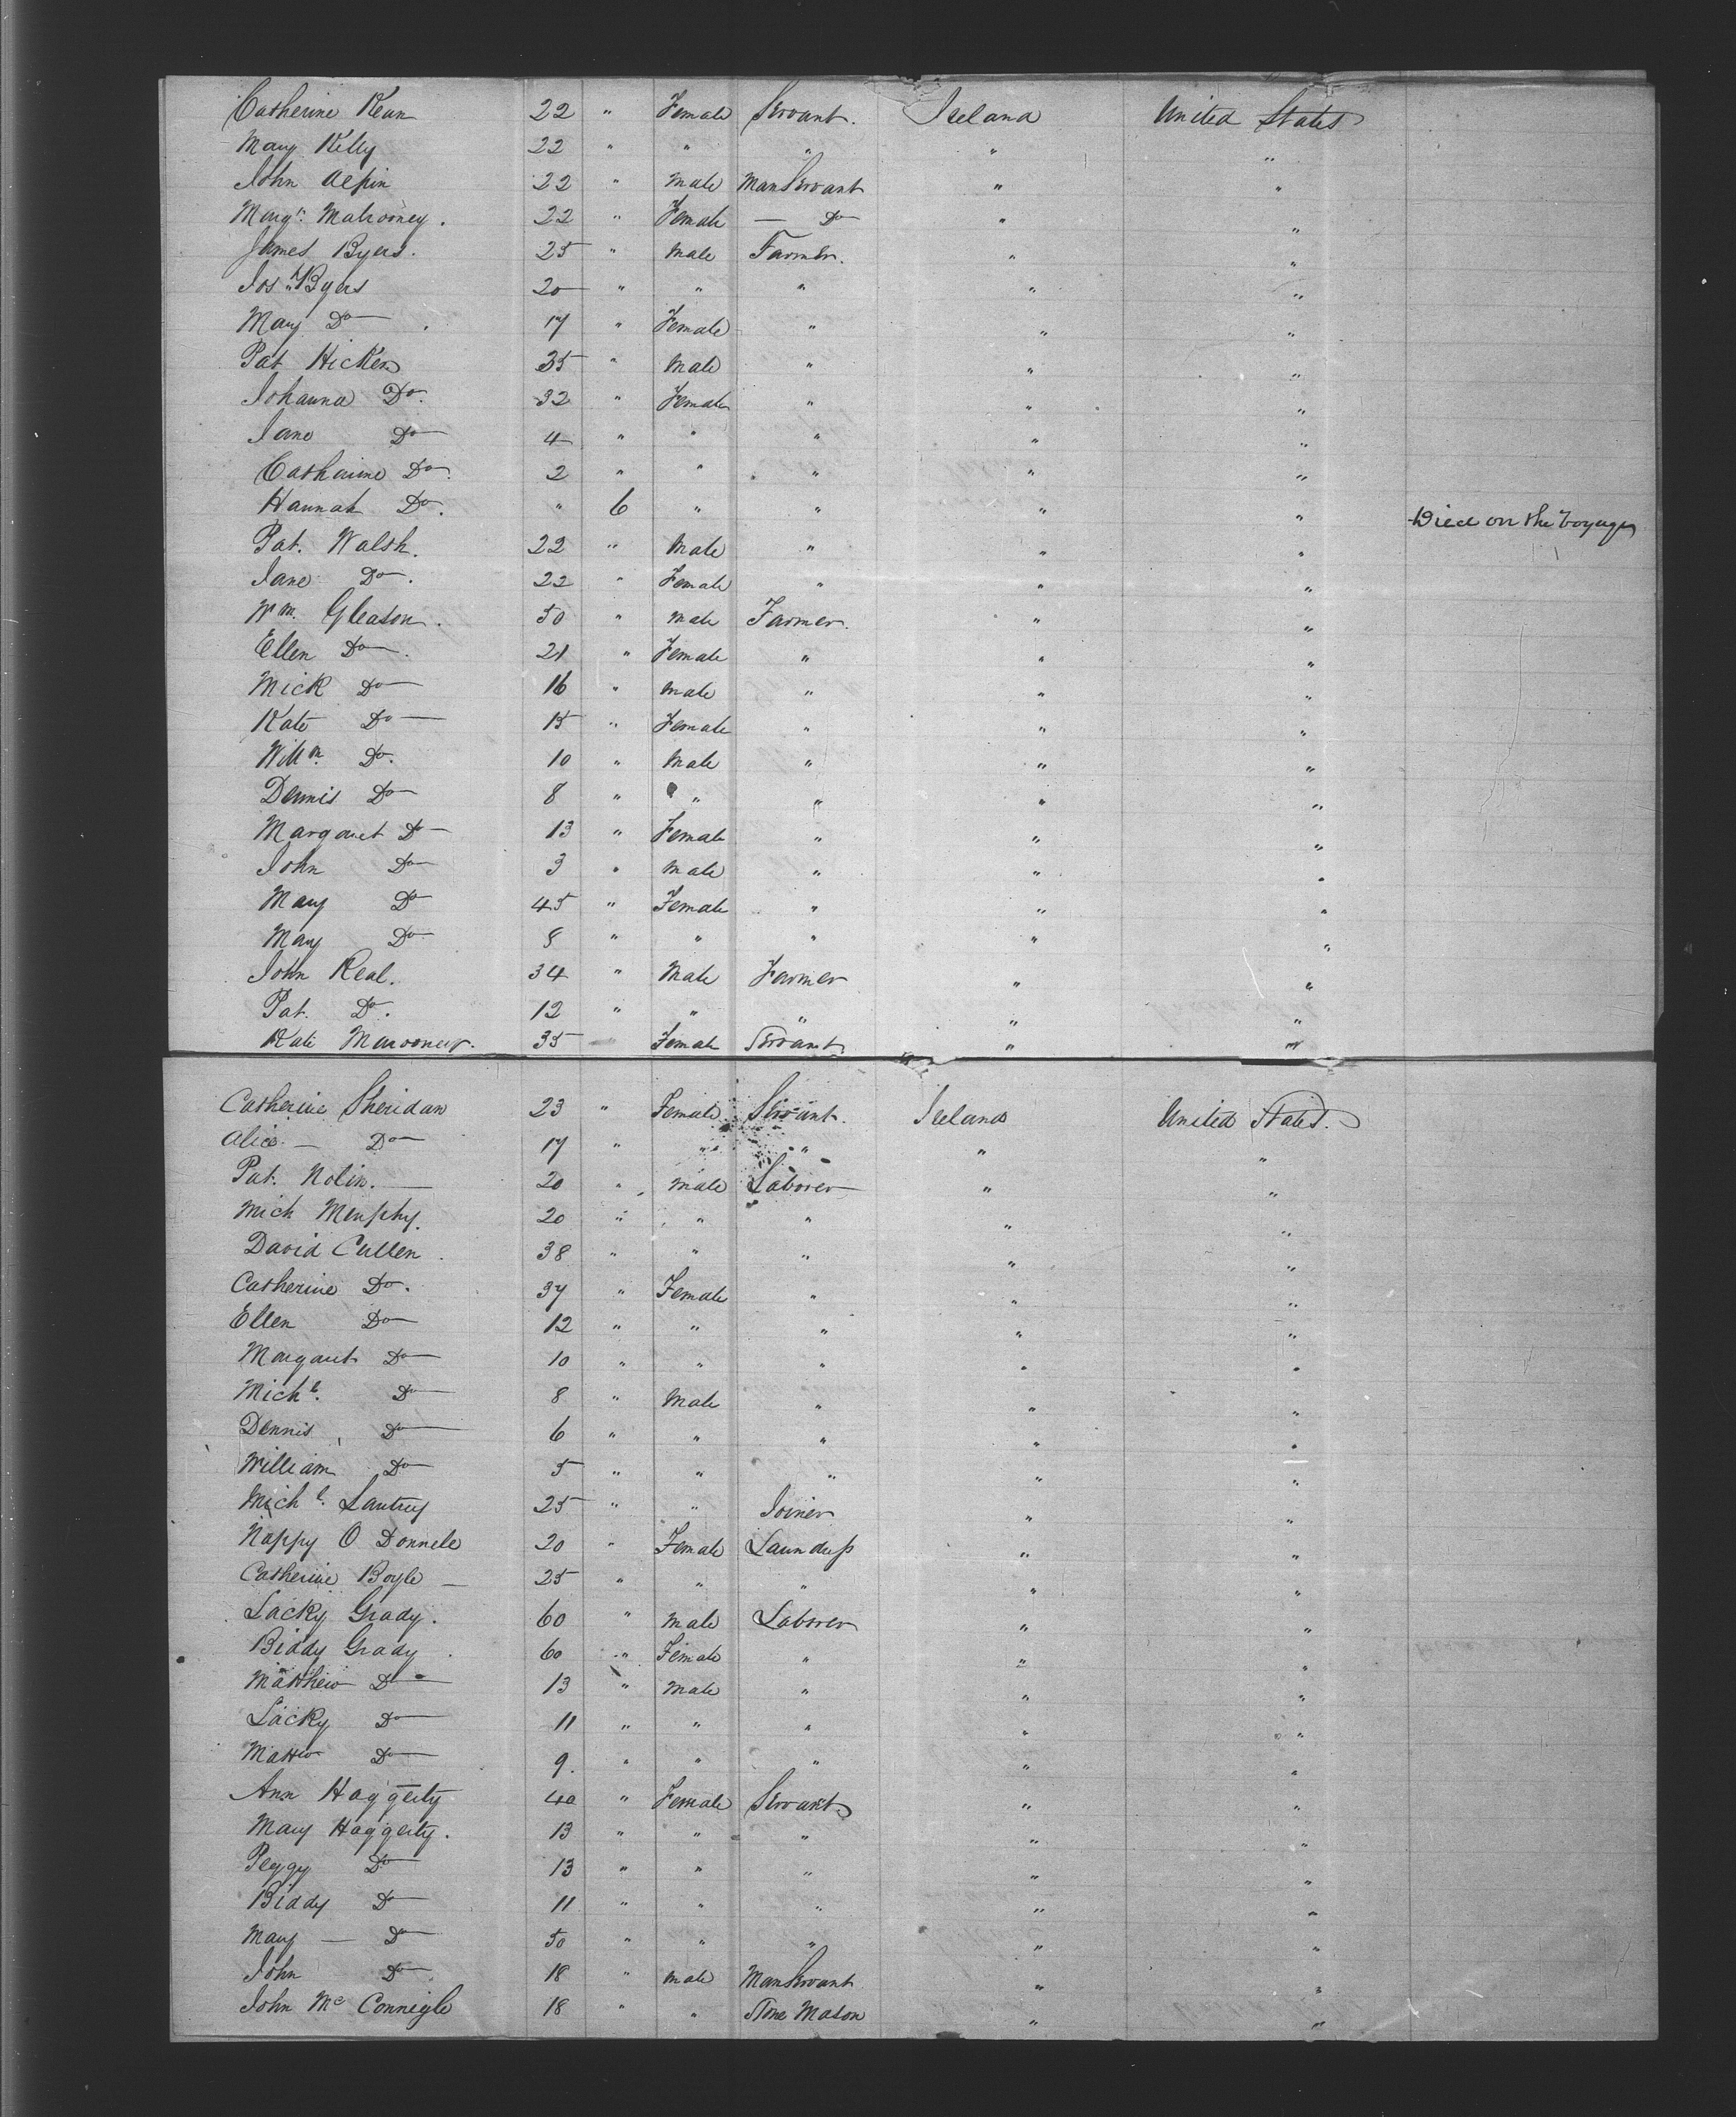 Catherine Kean 22 " Female Servant. Ireland United States
Mary Kelly 22 " " " " "
John Alpin 22 " Male Man Servant " "
Margt. Mahooney. 22 " Female — Do " "
James Byers. 25 " Male Farmer. " "
Jos. Byers 20 " " " " "
Mary Do 17 " Female " " "
Pat Hicken 35 " Male " " "
Johanna Do. 32 " Female " " "
Jane Do 4 " " " " "
Catharine Do. 2 " " " " "
Hannah Do. " 6 " " " " Died on the Voyage
Pat. Walsh. 22 " Male " " "
Jane Do. 22 " Female " " "
Wm. Gleason. 50 " Male Farmer. " "
Ellen Do. 21 " Female " " "
Mick Do 16 " Male " " "
Kate Do 15 " Female " " "
Willm. Do. 10 " Male " " "
Dennis Do 8 " " " " "
Margaret Do 13 " Female " " "
John Do 3 " Male " " "
Mary Do 45 " Female " " "
Mary Do 8 " " " " "
John Keal. 34 " Male Farmer " "
Pat. Do. 12 " " " " "
Kate 35 " Female Servant " "
Catherine Sheridan 23 " Female Servant. Ireland United States.
Alice — Do 17 " " " " "
Pat. Nolin. 20 " Male Laborer " "
Mich Murphy. 20 " " " " "
David Cullen. 38 " " " " "
Catherine Do. 37 " Female " " "
Ellen Do 12 " " " " "
Margaret Do 10 " " " " "
Michl. Do 8 " Male " " "
Dennis Do 6 " " " " "
William Do 5 " " " " "
Michl. 25 " " Joiner " "
Nappy O Donnele 20 " Female Laundress " "
Catherine Boyle — 25 " " " " "
Lacky Grady. 60 " Male Laborer " "
Biddy Grady. 60 " Female " " "
Matthew Do 13 " Male " " "
Lacky Do 11 " " " " "
Do 9. " " " " "
Ann Haggerty 40 " Female Servant " "
Mary Haggerty. 13 " " " " "
Peggy Do 13 " " " " "
Biddy Do 11 " " " " "
Mary — Do 50 " " " " "
John Do 18 " Male Man Servant " "
John Mc Connigle 18 " " Stone Mason " "